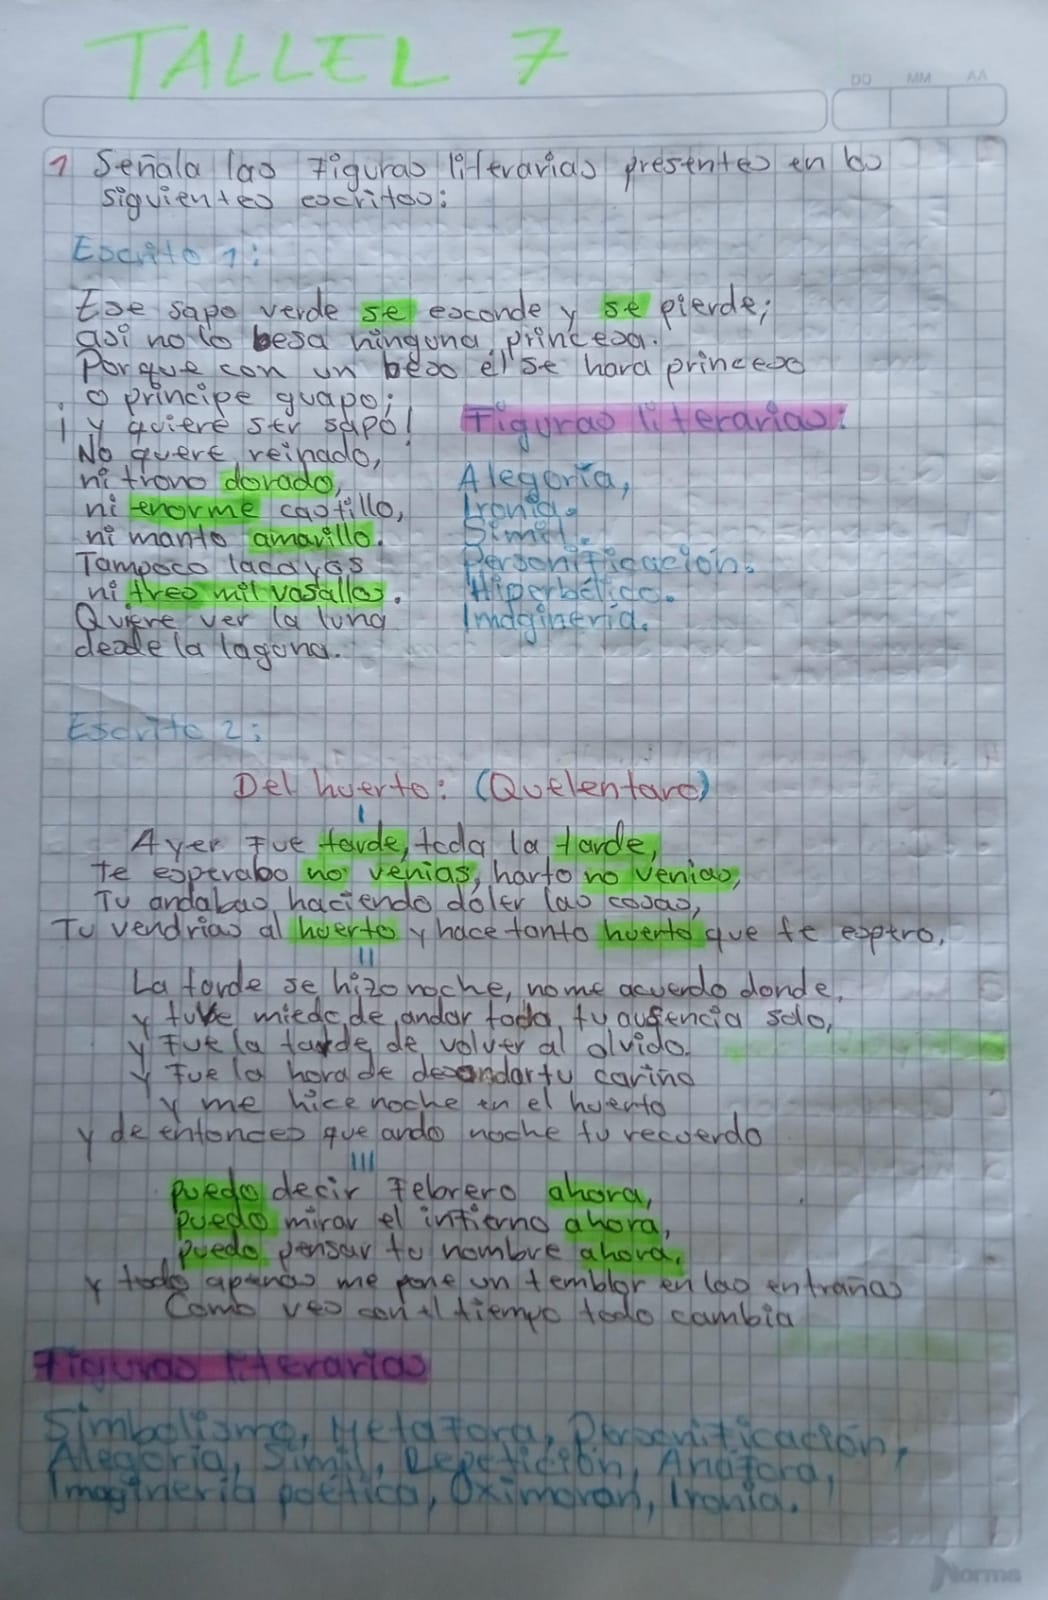 TALLEL 7
DD MM AA
1 Señala las Figuras literarias presentes en los
siguientes escritos:
Escrito 1:
Ese sapo verde se esconde y se pierde;
asi no lo besa ninguna princesa.
Porque con un beso él se hara princeso
o principe guapo;
¡ y quiere ser sapo!
No quere reinado,
ni trono dorado,
ni enorme castillo,
ni manto amarillo.
Tampoco lacayos
ni tres mil vasallos.
Quiere ver la luna
desde la laguna.
Figuras literarias:
Alegoría,
Ironía.
Simil.
Personificación.
Hiperbólico.
Imaginería.
Escrito 2:
Del huerto: (Quelentaro)
I
Ayer Fue tarde, toda la tarde,
te esperaba no venias, harto no venias,
Tu andabas haciendo doler las cosas,
Tu vendrias al huerto y hace tanto huerto que te espero.
II
La tarde se hizo noche, no me acuerdo donde,
y tuve miedo de andar toda tu ausencia solo,
y Fue la tarde de volver al olvido.
y Fue la hora de desandar tu cariño
y me hice noche en el huerto
y de entonces que ando noche tu recuerdo
III
puedo decir Febrero ahora,
puedo mirar el infierno ahora,
puedo pensar tu nombre ahora,
y todo apenas me pone un temblor en las entrañas
Como ves con el tiempo todo cambia
Figuras literarias
Simbolismo, Metafora, Personificación,
Alegoría, Simil, Repetición, Anáfora,
Imaginería poética, Oximoron, Ironia.
Norma